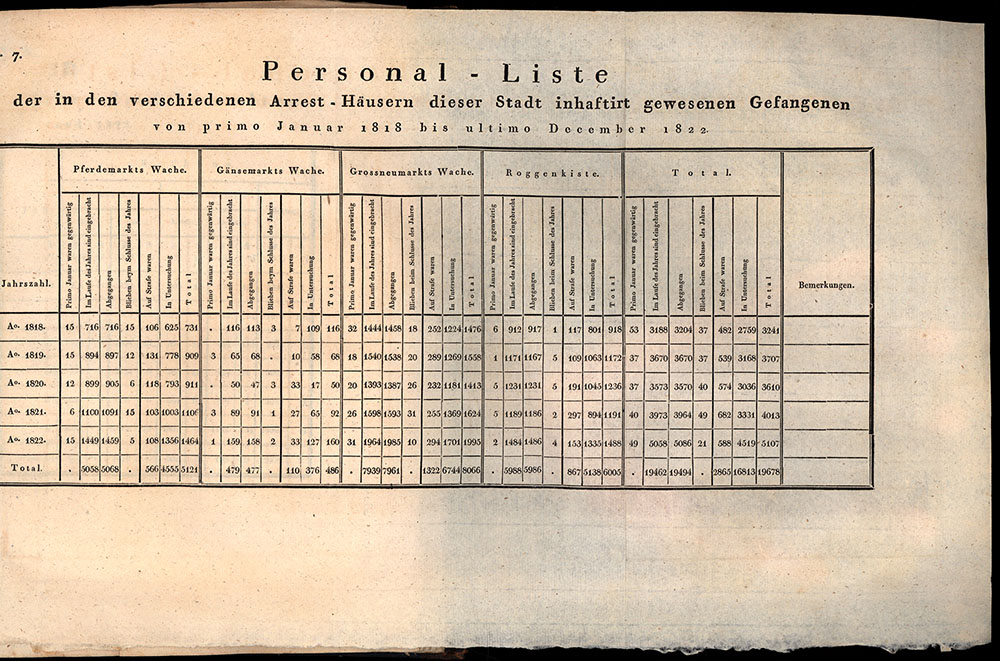 7.
Personal - Liste
der in den verschiedenen Arrest - Häusern dieser Stadt inhaftirt gewesenen Gefangenen
von primo Januar 1818 bis ultimo December 1822.
Jahrszahl. Pferdemarkts Wache. Gänsemarkts Wache. Grossneumarkts Wache. Roggenkiste. Total. Bemerkungen.
Primo Januar waren gegenwärtig Im Laufe des Jahres sind eingebracht Abgegangen Blieben beym Schlusse des Jahres Auf Strafe waren In Untersuchung Total Primo Januar waren gegenwärtig Im Laufe des Jahres sind eingebracht Abgegangen Blieben beym Schlusse des Jahres Auf Strafe waren In Untersuchung Total Primo Januar waren gegenwärtig Im Laufe des Jahres sind eingebracht Abgegangen Blieben beim Schlusse des Jahres Auf Strafe waren In Untersuchung Total Primo Januar waren gegenwärtig Im Laufe des Jahres sind eingebracht Abgegangen Blieben beim Schlusse des Jahres Auf Strafe waren In Untersuchung Total Primo Januar waren gegenwärtig Im Laufe des Jahres sind eingebracht Abgegangen Blieben beym Schlusse des Jahres Auf Strafe waren In Untersuchung Total
Ao. 1818. 15 716 716 15 106 625 731 . 116 113 3 7 109 116 32 1444 1458 18 252 1224 1476 6 912 917 1 117 801 918 53 3188 3204 37 482 2759 3241
Ao. 1819. 15 894 897 12 131 778 909 3 65 68 . 10 58 68 18 1540 1538 20 289 1269 1558 1 1171 1167 5 109 1063 1172 37 3670 3670 37 539 3168 3707
Ao. 1820. 12 899 905 6 118 793 911 . 50 47 3 33 17 50 20 1393 1387 26 232 1181 1413 5 1231 1231 5 191 1045 1236 37 3573 3570 40 574 3036 3610
Ao. 1821. 6 1100 1091 15 103 1003 1106 3 89 91 1 27 65 92 26 1598 1593 31 255 1369 1624 5 1189 1186 2 297 894 1191 40 3973 3964 49 682 3331 4013
Ao. 1822. 15 1449 1459 5 108 1356 1464 1 159 158 2 33 127 160 31 1964 1985 10 294 1701 1995 2 1484 1486 4 153 1335 1488 49 5058 5086 21 588 4519 5107
Total. . 5058 5068 . 566 4555 5121 . 479 477 . 110 376 486 . 7939 7961 . 1322 6744 8066 . 5988 5986 . 867 5138 6005 . 19462 19494 . 2865 16813 19678